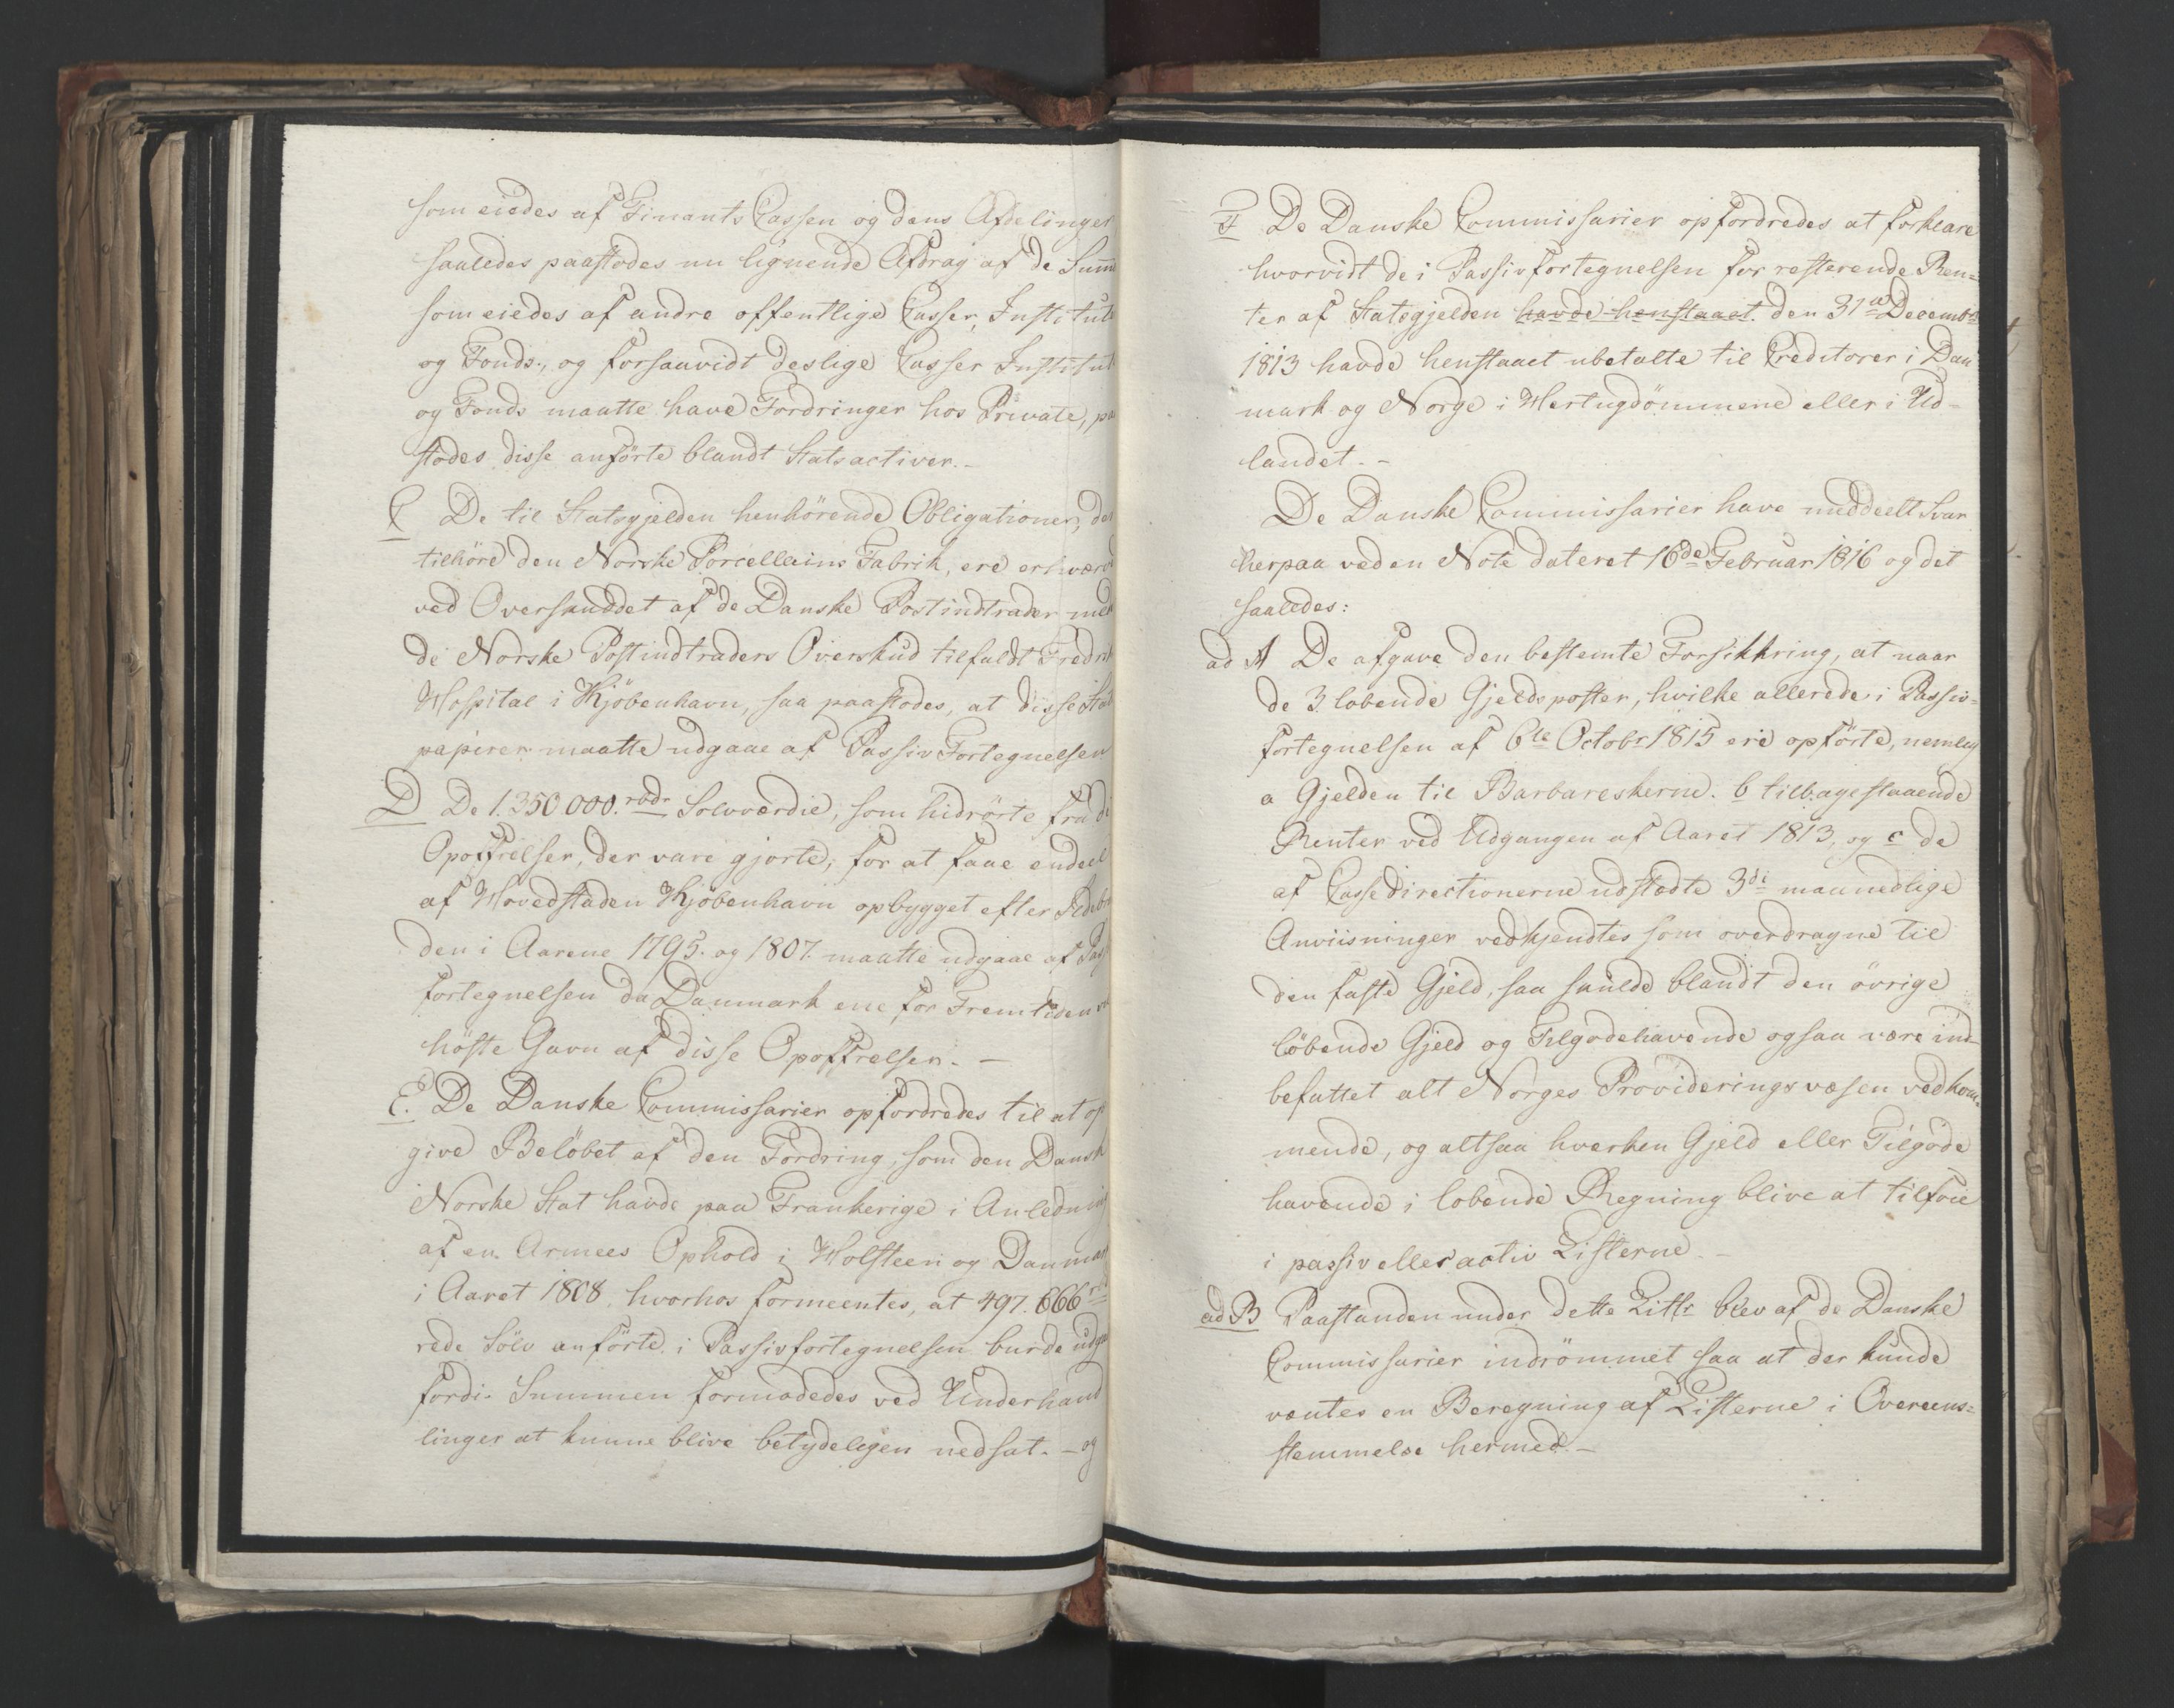 som eiedes af Finants Cassen og dens Afdelinger
saaledes paastodes nu lignende Afdrag af de Sum̄
som eiedes af andre offentlige Casser, Institut
og Fonds., og forsaavidt deslige Casser Institut
og Fonds maatte have Fordringer hos Private, pa
stodes disse anførte blandt Statsactiver.-
C De til Statsgjelden henhörende Obligationer, de
tilhöre den Norske Porcellains Fabrik, ere erhvær
ved Overskuddet af de Danske Postindtrader
de Norske Postindtraders Overskud tilfaldt Fredri
Hospital i Kjöbenhavn, saa paastodes, at disse Stat
papirer maatte udgaae af Passiv Fortegnelsen
D De 1.350.000. rbdr Solvværdie, som hidrörte fra de
Opoffrelser, der vare gjorte, for at faae endeel
af Hovedstaden Kjöbenhavn opbygget efter Ildebr
den i Aarene 1795. og 1807. maatte udgaae af Pas
fortegnelsen da Danmark ene for Fremtiden
höste Gavn af disse Opoffrelser. -
E. De Danske Commissarier opfordredes til at op
give Belöbet af den Fordring, som den Dansk
Norske Stat havde paa Frankerige i Anledning
af en Armees Ophold i Holsteen og Danmar
i Aaret 1808, hvorhos formeentes, at 497.666
rede Sölv anförte i Passivfortegnelsen burde udga
fordi Summen formodedes ved Underhand
linger at kunne blive betydeligen nedsat. - og
F De Danske Commissarier opfordredes at forklare
hvorvidt de i Passivfortegnelsen for resterende Ren=
ter af Statsgjelden havde henstaaet den 31te Decembr
1813 havde henstaaet ubetalte til Creditorer i Dan
mark og Norge i Hertugdömmene eller i Ud-
landet. -
De Danske Commissarier have meddeelt Svar
herpaa ved en Note dateret 16de Februar 1816 og det
saaledes:
ad A De afgave den bestemte Forsikkring, at naar
de 3 lobende Gjeldsposter, hvilke allerede i Passiv=
fortegnelsen af 6te Octobr 1815 ere opförte, nemlig
a Gjelden til Barbareskerne. b tilbagestaaende
Renter ved Udgangen af Aaret 1813, og c de
af Cassedirectionerne udstædte 3de maanedlige
Anviisninger vedkjendtes som overdragne til
den faste Gjeld, saa skulde blandt den övrige
löbende Gjeld og Tilgodehavende ogsaa være ind-
befattet alt Norges Provideringsvæsen vedkom=
mende, og altsaa hverken Gjeld eller Tilgode
havende i lobende Regning blive at tilfoie
i passiv eller activ Listerne. -
ad B Paastanden under dette Littr blev af de Danske
Commissarier indrömmet saa at der kunde
ventes en Beregning af Listerne i Overeens=
stemmelse hermed. -